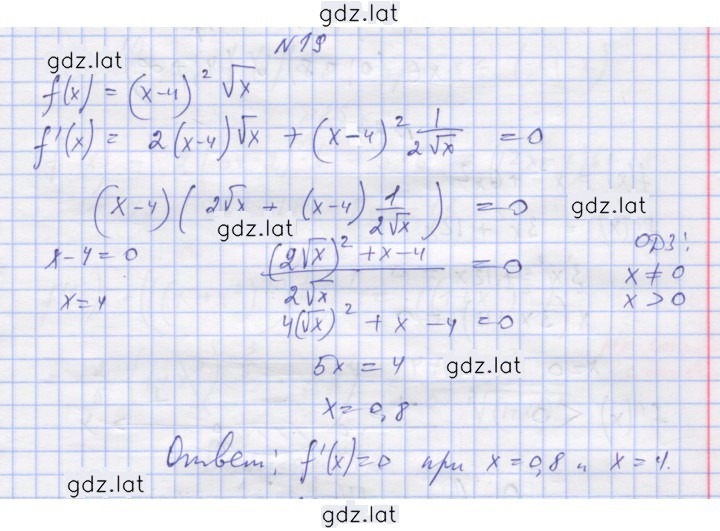 gdz.lat
№19
gdz.lat
f(x) = (x-4)² √x
f'(x) = 2(x-4)√x + (x-4)² 1/(2√x) = 0
(x-4)(2√x + (x-4) 1/(2√x)) = 0
gdz.lat
gdz.lat
x-4=0
((2√x)² + x-4)/(2√x) = 0
ОДЗ!
x≠0
x=4
x>0
4(√x)² + x - 4 = 0
5x = 4
gdz.lat
x=0,8
Ответ: f'(x)=0 при x=0,8 и x=4.
gdz.lat
gdz.lat